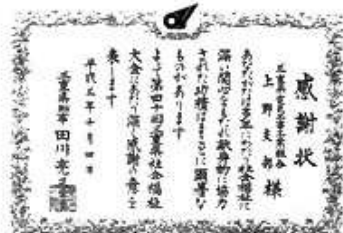 感謝状
上野支部 様
あなたがたは多年にわたり社会福祉に
深い関心をよせられ献身的に協力
された功績はまことに顕著な
ものがあります
よって第四十回三重県社会福祉
大会にあたり深く感謝の意を
表します
平成三年十月四日
三重県知事 田川亮三